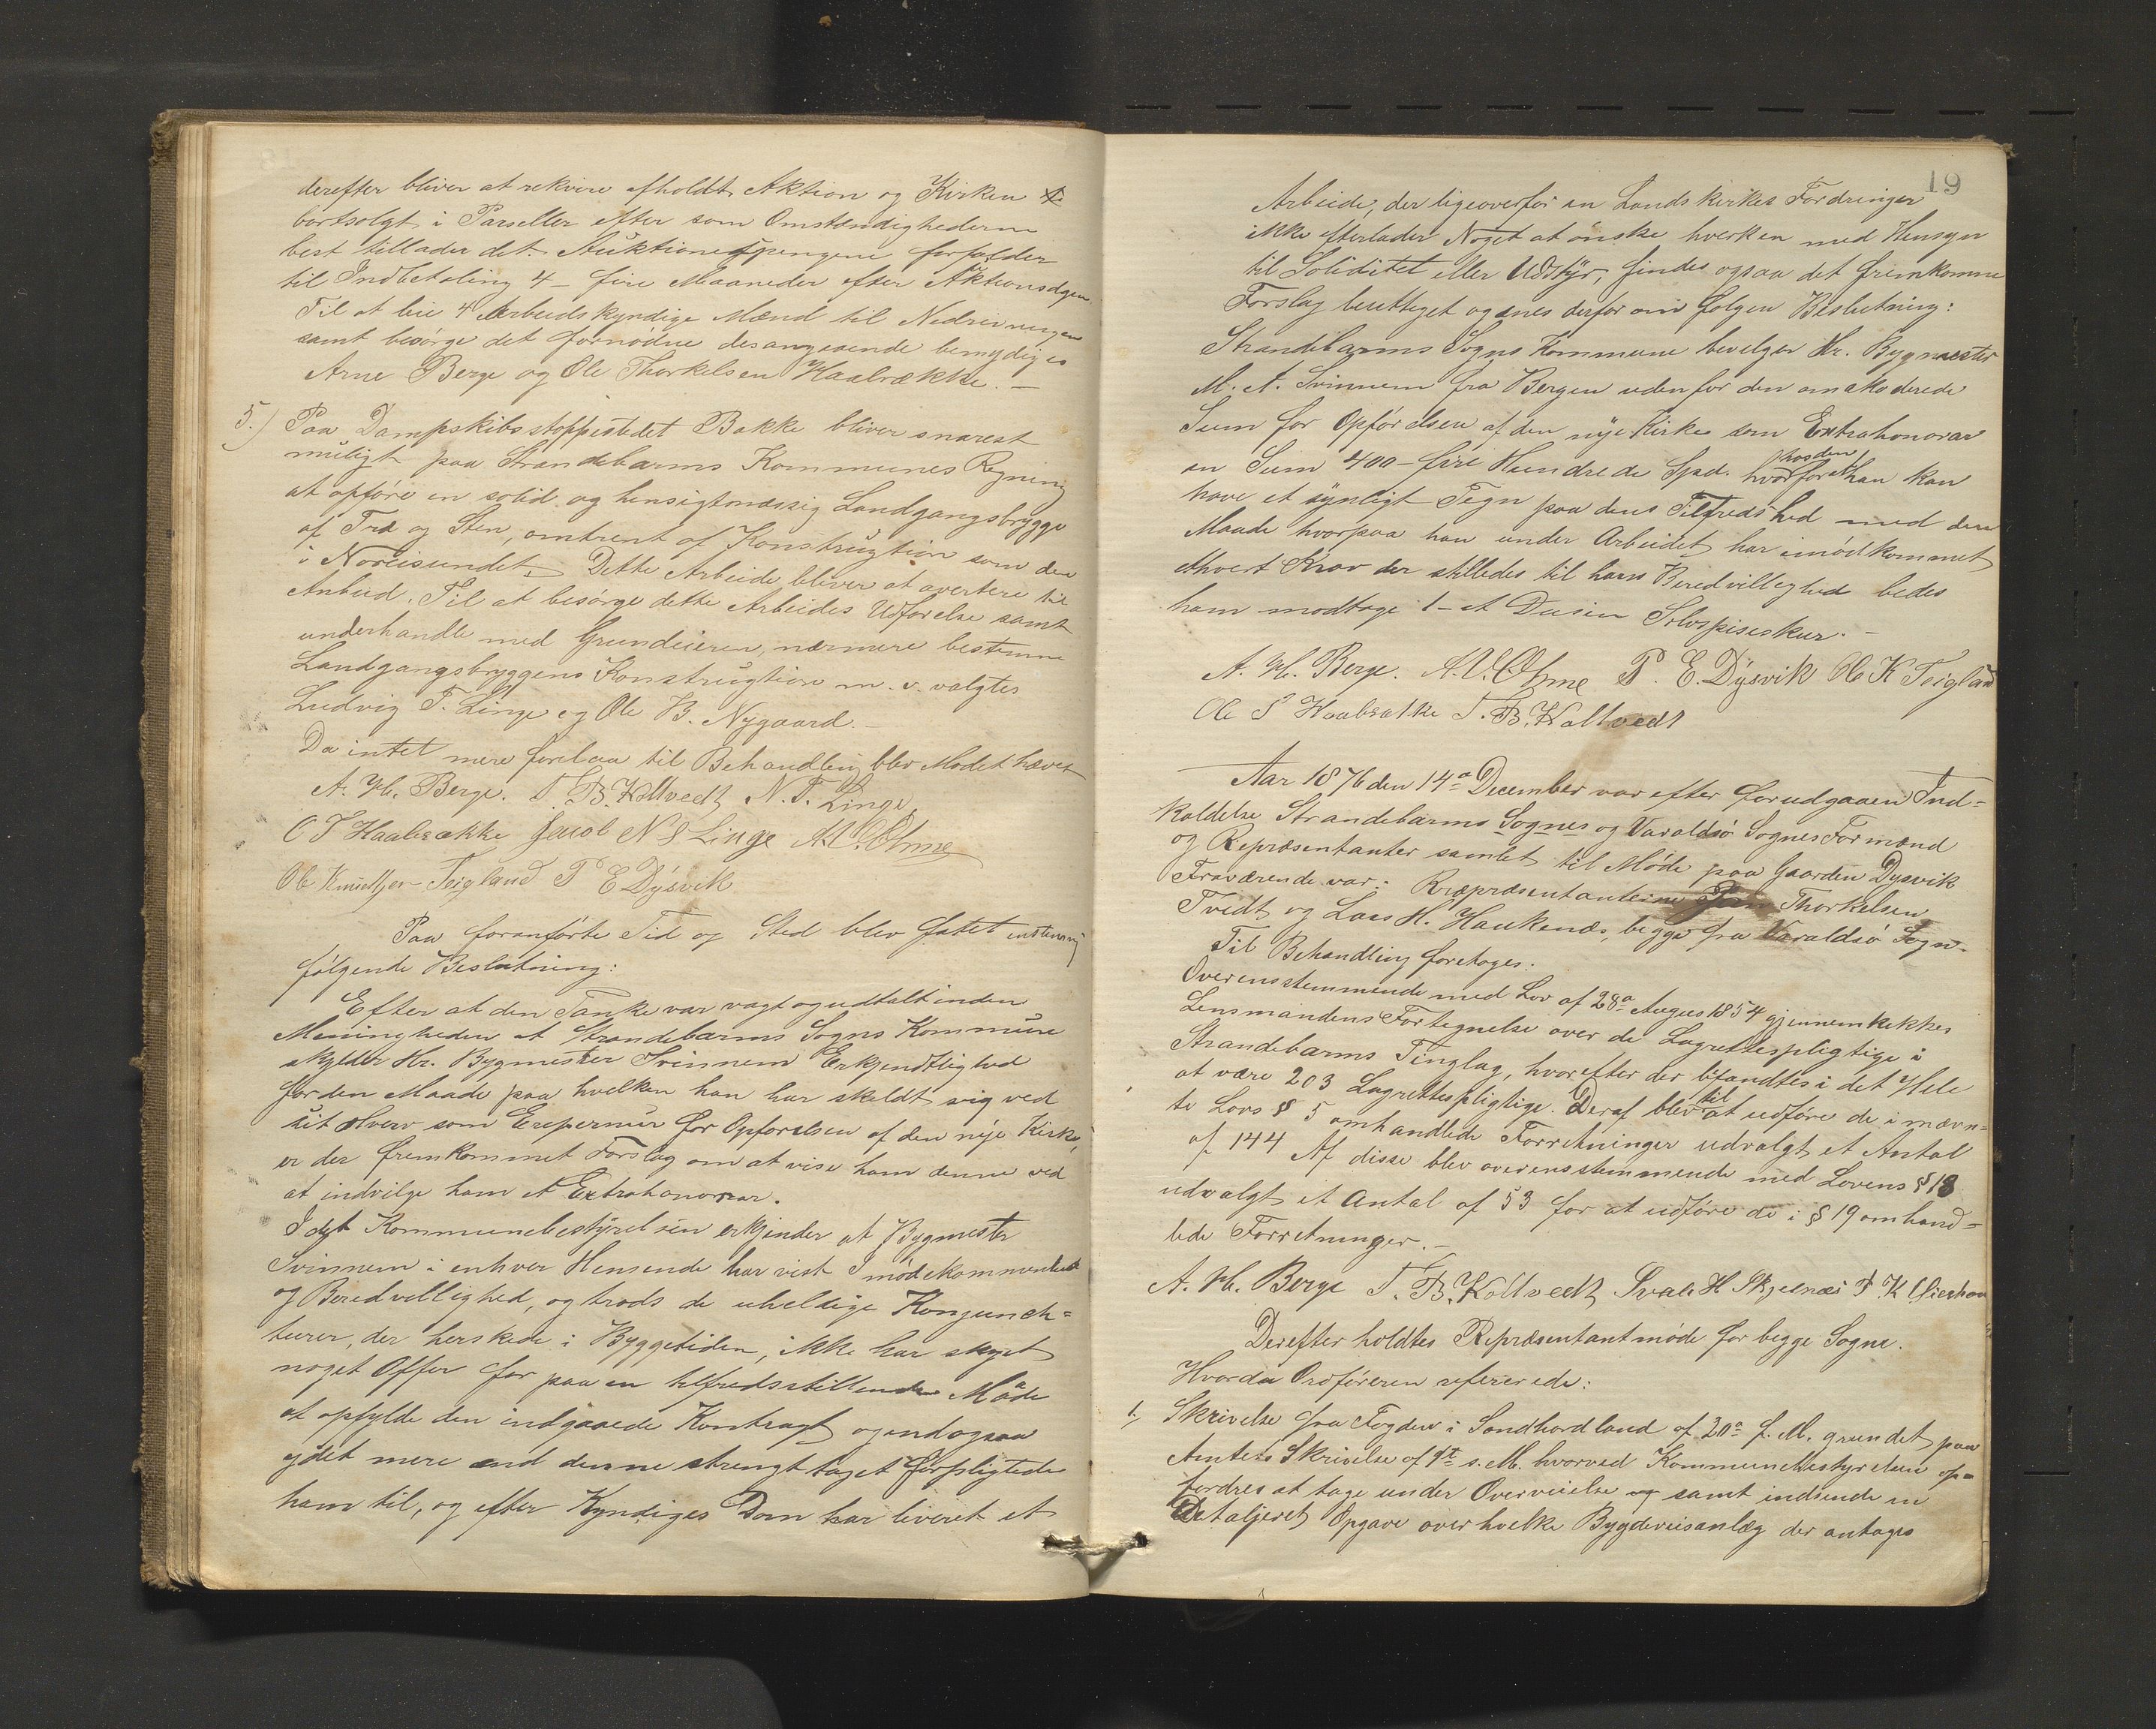 derefter bliver at rekvire afholdt Aktion og Kirken
bortsolgt i Parseller efter som Omstændighederne
best tillader det. Auktionspengene forfalder
til Indbetaling 4 - fire Maaneder efter Aktionsdgen.
Til at leie 4 Arbeidskyndige Mænd til Nedrivningen
samt besørge det fornødne desangaaende bemydiges
Arne Berge og Ole Thorkelsen Haabrække. -
5.) Paa Dampskibsstoppestedet Bakke bliver snarest
muligt paa Strandebarms Kommunes Regning
at opføre en solid og hensigtmæssig Landgangsbrygge
af Træ og Sten, omtrent af Konstrugtion som den
i Noreisundet. Dette Arbeide bliver at avertere til
Anbud. Til at besørge dette Arbeides Udførelse samt
underhandle med Grundeieren, nærmere bestemme
Landgangsbryggens Konstrugtion m. v. valgtes
Ludvig T. Linge og Ole B. Nygaard. -
Da intet mere forelaa til Behandling blev Mødet hævet
A. Hb. Berge. T. B. Koltvedt N. T. Linge
O T Haabrække Jacob N S Linge A. O. Ohme
Ole Knudtsen Teigland P E Dysvik
Paa foranførte Tid og Sted blev fatet enstemmig
følgende Beslutning:
Efter at den Tanke var vagt og udtalt inden
Menigheden at Strandebarms Sogns Kommune
skylder Hr. Bygmester Svinnem Erkjendtlighed
for den Maade paa hvelken han har skeldt sig ved
sit Hverv som Erepernør for Opførelsen af den nye Kirke,
er der fremkommet Forslag om at vise ham denne ved
at indvilge ham et Extrahonorar.
I det Kommunebestyrelsen erkjender at Bygmester
Svinnem i enhver Hensende har vist Imødekommenhed
og Beredvillighed, og trods de uheldige Konjunch=
turer, der herskede i Byggetiden, ikke har skyet
noget Offer for paa en tilfredsstillende Måde
at opfylde den indgaaede Kontragt ogendogsaa
ydet mere end denne strengt taget forpligtede
ham til, og efter Kyndiges Dom har liveret et
19
Arbeide, der ligeoverfor en Landskirkes Fordringer
ikke efterlader Noget at ønske hverken med Hensyn
til Soliditet eller Udstyr, findes ogsaa det fremkomne
Forslag berettiget og enes derfor om følgen Beslutning:
Strandebarms Sogns Kommune bevelger Hr. Bygmester
M. A. Svinnem fra Bergen udenfor den omakoderede
Sum for Opførelsen af den nye Kirke som Extrahonorar
en Sum 400 - fire Hundrede Spd. hvorfor han kan
hos den
have et synligt Tegn paa dens Tilfredshed med den
Maade hvorpaa han under Arbeidet har imødkommet
ethvert Krav der stilledes til hans Beredvillighed bedes
ham modtage 1 - et Dusin Sølvspiseskeer. -
A. Hb. Berge. A. O. Ohme P. E. Dysvik Ole K Teigland
Ole T Haabrække T. B. Koltvedt
Aar 1876 den 14de December var efter forudgaaen Ind=
kaldelse Strandebarms Sognes og Varaldsø Sognes Formænd
og Repræsentanter samlet til Møde paa Gaarden Dysvik
Fraværende var: Repræsentanterne Thorkelsen
Tvedt og Lars H. Haukenæs, begge fra Varaldsø Sogn.
Til Behandling foretages:
Overensstemmende med Lov af 28de Augus 1854 gjennemkekkes
Lensmandens Fortegnelse over de Lagrettespligtige i
Strandebarms Tinglag, hvorefter der befandtes i det Hele
at være 203 Lagrettespligtige. Deraf blev til at udføre de i nævn=
te Lovs § 5 omhandlede Forretninger udvalgt et Antal
af 144 Af disse blev overensstemmende med Lovens § 18
udvalgt et Antal af 53 for at udføre de i § 19 omhand=
lede Forretninger. -
A. Hb. Berge T. B. Koltvedt Sval H Skjelnæs T K
Derefter holdtes Repræsentantmøde for begge Sogne.
Hvorda Ordføreren refererede:
1.) Skrivelse fra Fogden i Søndhordland af 20de f. M. grundet paa
Amtets Skrivelse af 9de s. M. hvorved Kommunebestyrelsen op=
fordres at tage under Overveielse samt indsende en
Detaljeret Opgave over hvelke Bygdeveisanlæg der antages